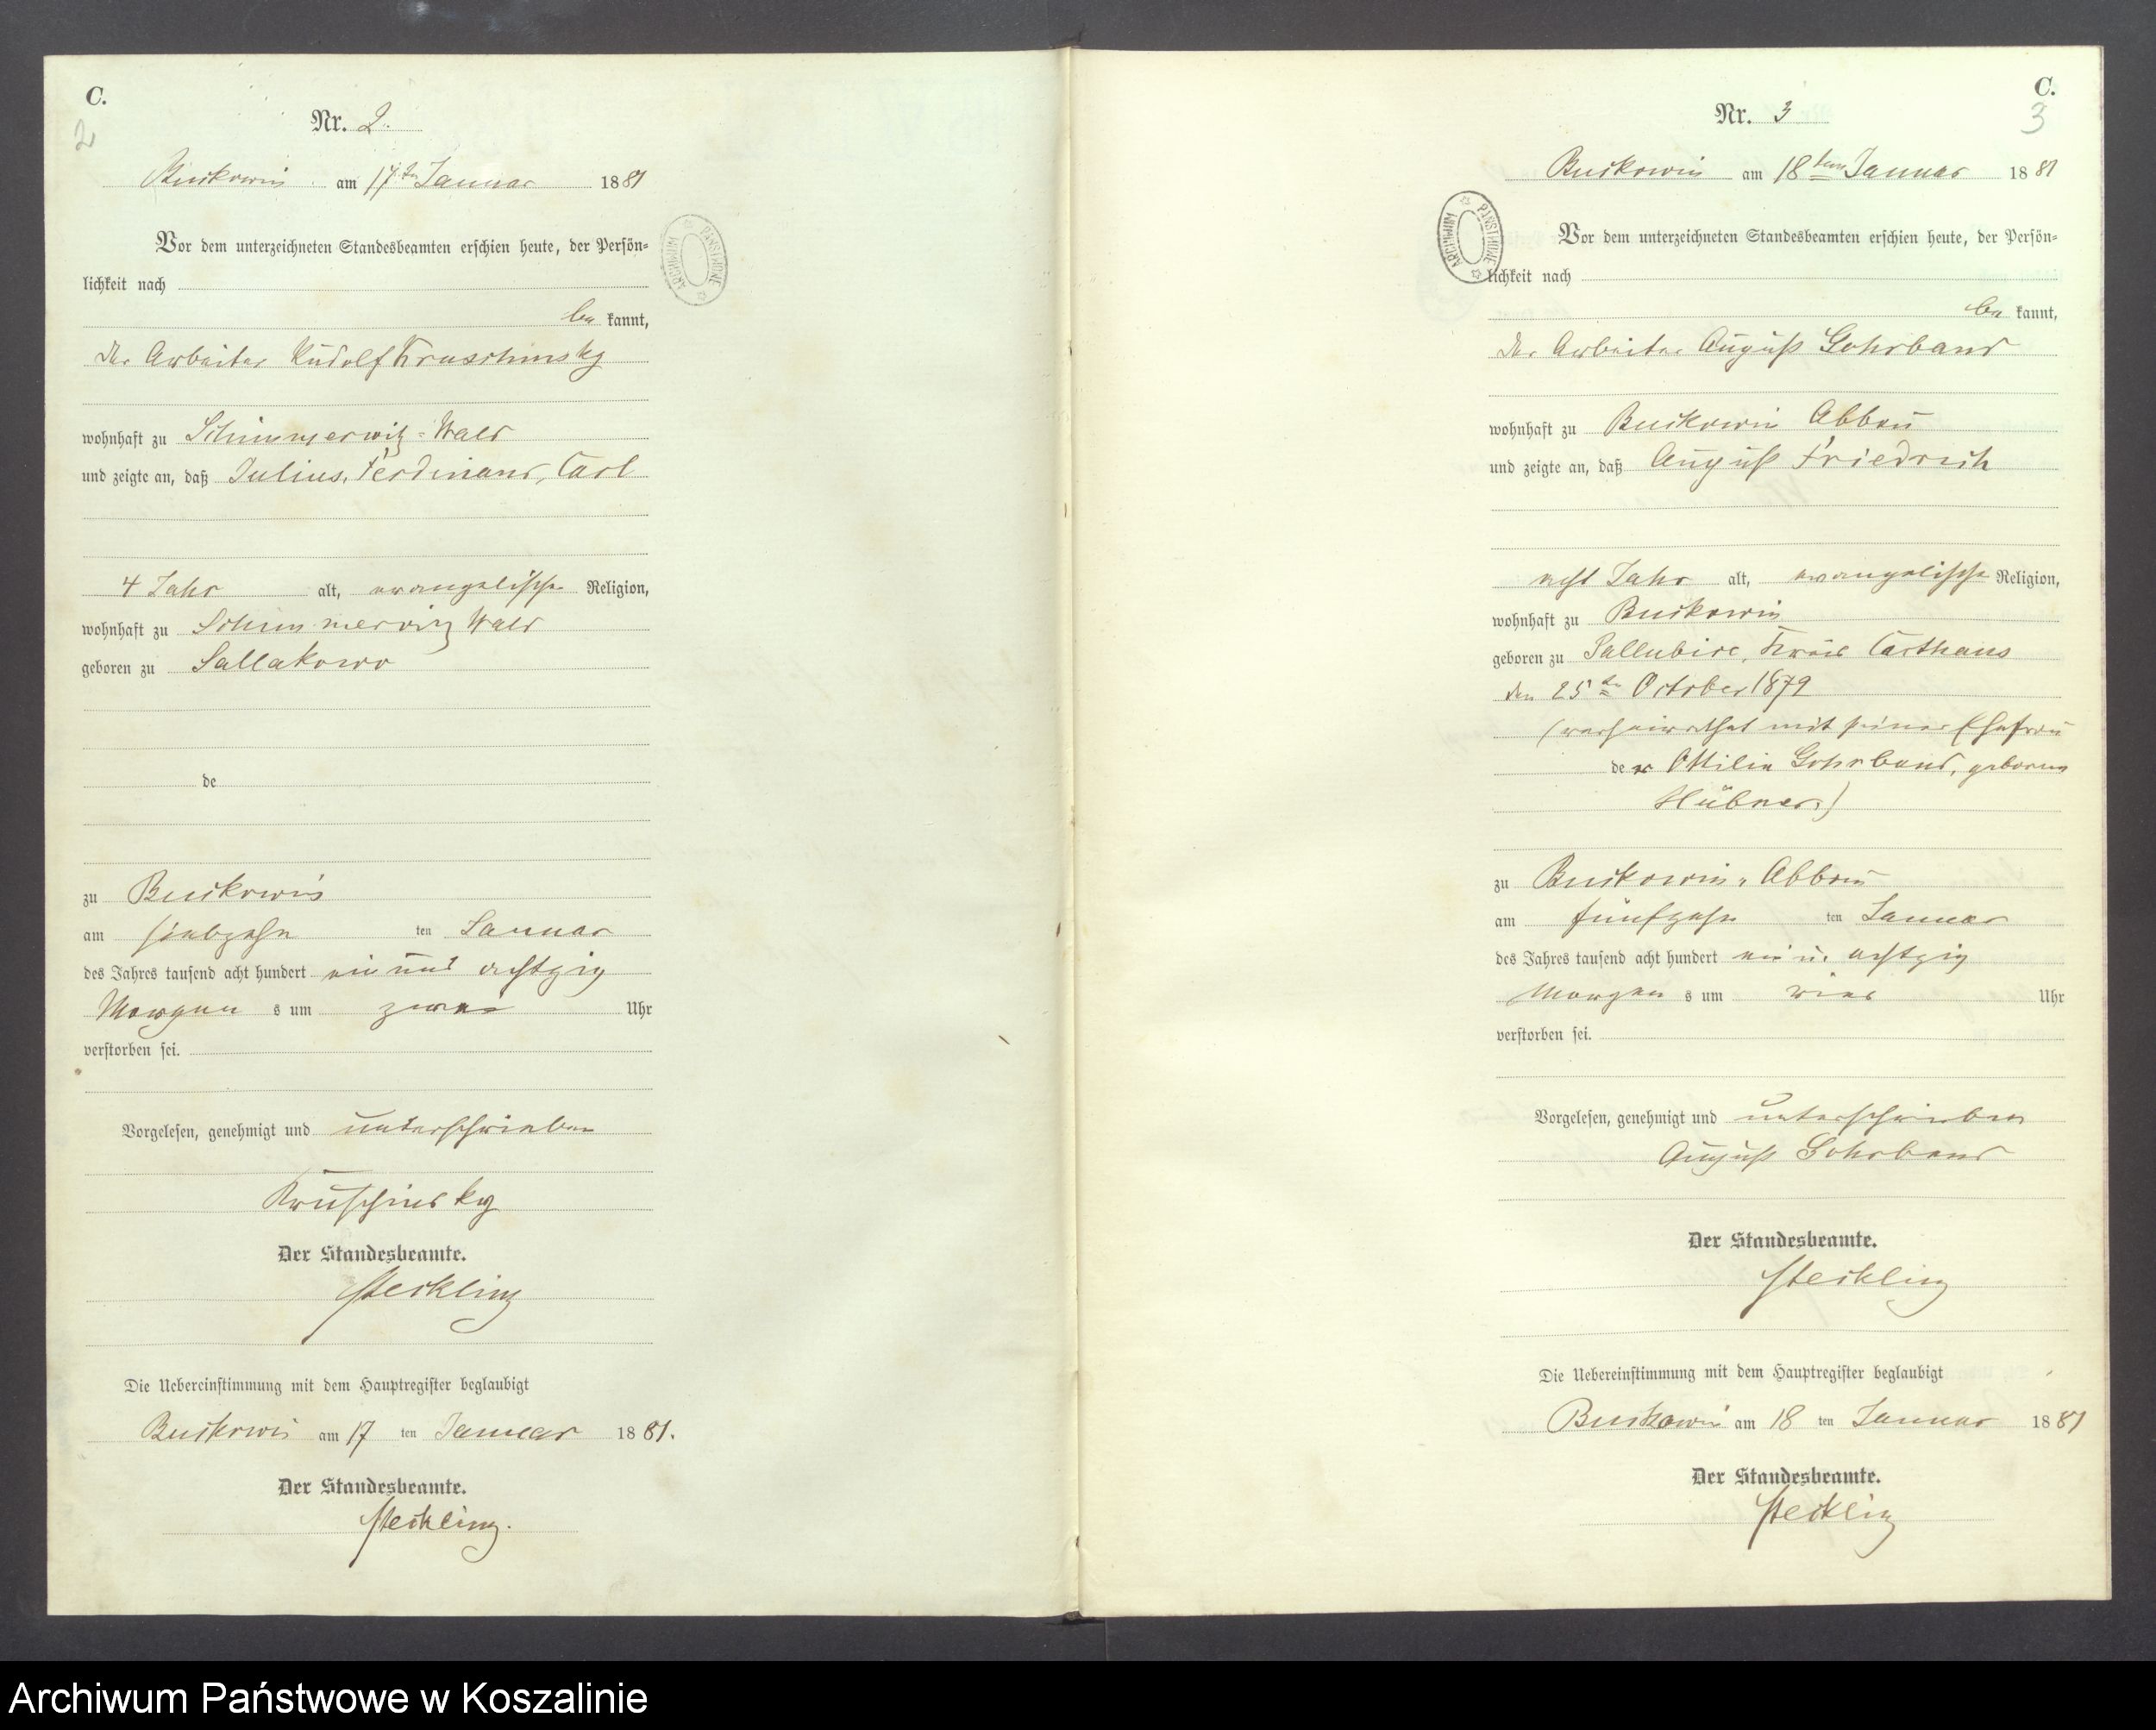 C.
2
Nr. 2.
Buckowin am 17ten Januar 1881
Vor dem unterzeichneten Standesbeamten erschien heute, der Persön-
lichkeit nach
be kannt,
der Arbeiter Rudolf Kruschinsky
wohnhaft zu Schimmerwitz-Wald
und zeigte an, daß Julius, Ferdinand, Carl
4 Jahr alt, evangelischer Religion,
wohnhaft zu Schimmerwitz Wald
geboren zu Sallakowo
de
zu Buckowin
am siebzehn ten Januar
des Jahres tausend acht hundert ein und achtzig
Morgen s um zwei Uhr
verstorben sei.
Vorgelesen, genehmigt und unterschrieben
Kruschinsky
Der Standesbeamte.
Steckling
Die Uebereinstimmung mit dem Hauptregister beglaubigt
Buckowin am 17 ten Januar 1881.
Der Standesbeamte.
Steckling.
ARCHIWUM PAŃSTWOWE
C.
3
Nr. 3
Buckowin am 18ten Januar 1881
ARCHIWUM PAŃSTWOWE
Vor dem unterzeichneten Standesbeamten erschien heute, der Persön-
lichkeit nach
be kannt,
der Arbeiter August Gohrband
wohnhaft zu Buckowin Abbau
und zeigte an, daß August Friedrich
acht Jahr alt, evangelischer Religion,
wohnhaft zu Buckowin
geboren zu Kreis Carthaus
den 25ten October 1872
(verheirathet mit seiner Ehefrau
de r Ottilie Gohrband, geborene
Hübner.)
zu Buckowin, Abbau
am fünfzehn ten Januar
des Jahres tausend acht hundert ein u. achtzig
Morgen s um vier Uhr
verstorben sei.
Vorgelesen, genehmigt und unterschrieben
August Gohrband
Der Standesbeamte.
Steckling
Die Uebereinstimmung mit dem Hauptregister beglaubigt
Buckowin am 18 ten Januar 1881
Der Standesbeamte.
Steckling
Archiwum Państwowe w Koszalinie